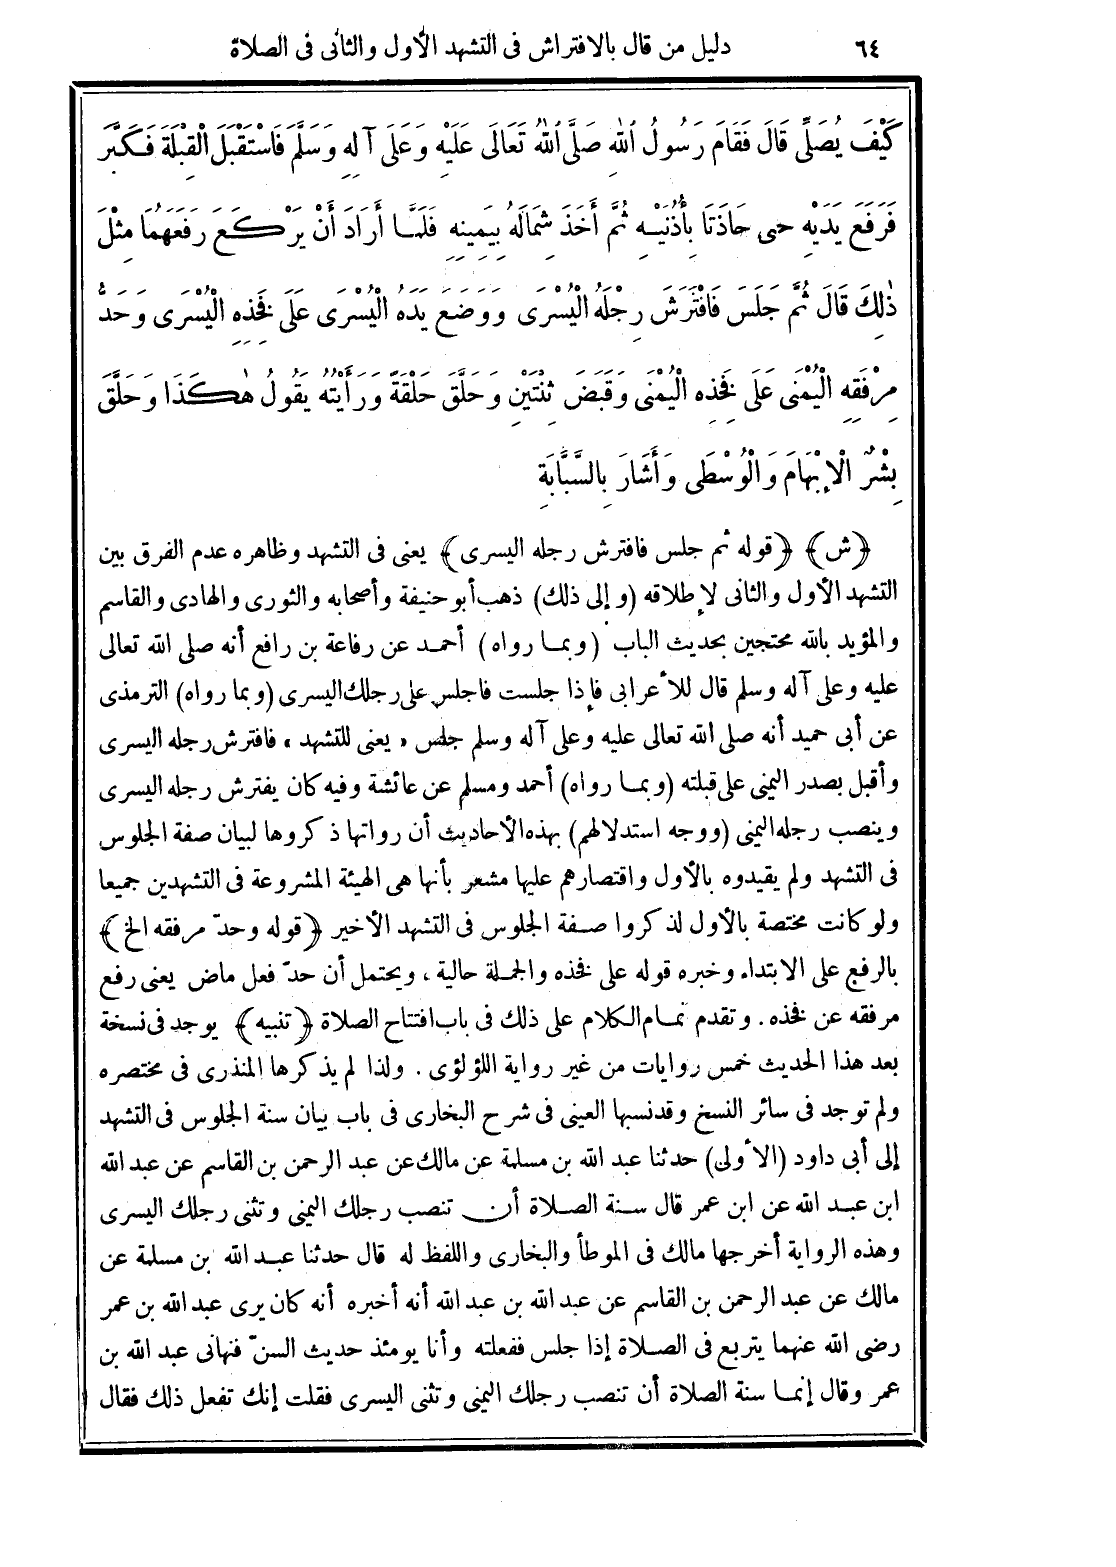 ٦٤ دليل من قال بالافتراش فى التشهد الأول والثانى فى الصلاة
كَيْفَ يُصَلِّى قَالَ فَقَامَ رَسُولُ اللهِ صَلَّى اللهُ تَعَالَى عَلَيْهِ وَعَلَى آلِهِ وَسَلَّمَ فَاسْتَقْبَلَ الْقِبْلَةَ فَكَبَّرَ
فَرَفَعَ يَدَيْهِ حتى حَاذَتَا بِأُذُنَيْهِ ثُمَّ أَخَذَ شِمَالَهُ بِيَمِينِهِ فَلَمَّا أَرَادَ أَنْ يَرْكَعَ رَفَعَهُمَا مِثْلَ
ذٰلِكَ قَالَ ثُمَّ جَلَسَ فَافْتَرَشَ رِجْلَهُ الْيُسْرَى وَوَضَعَ يَدَهُ الْيُسْرَى عَلَى فَخِذِهِ الْيُسْرَى وَحَدُّ
مِرْفَقِهِ الْيُمْنَى عَلَى فَخِذِهِ الْيُمْنَى وَقَبَضَ ثِنْتَيْنِ وَحَلَّقَ حَلْقَةً وَرَأَيْتُهُ يَقُولُ هٰكَذَا وَحَلَّقَ
بِشْرٌ الْإِبْهَامَ وَالْوُسْطَى وَأَشَارَ بِالسَّبَّابَةِ
﴿ش﴾ ﴿قوله ثم جلس فافترش رجله اليسرى﴾ يعنى فى التشهد وظاهره عدم الفرق بين
التشهد الأول والثانى لإطلاقه (وإلى ذلك) ذهب أبو حنيفة وأصحابه والثورى والهادى والقاسم
والمؤيد بالله محتجين بحديث الباب (وبما رواه) أحمد عن رفاعة بن رافع أنه صلى الله تعالى
عليه وعلى آله وسلم قال للأعرابى فإذا جلست فاجلس على رجلك اليسرى (وبما رواه) الترمذى
عن أبى حميد أنه صلى الله تعالى عليه وعلى آله وسلم جلس «يعنى للتشهد» فافترش رجله اليسرى
وأقبل بصدر اليمنى على قبلته (وبما رواه) أحمد ومسلم عن عائشة وفيه كان يفترش رجله اليسرى
وينصب رجله اليمنى (ووجه استدلالهم) بهذه الأحاديث أن رواتها ذكروها لبيان صفة الجلوس
فى التشهد ولم يقيدوه بالأول واقتصارهم عليها مشعر بأنها هى الهيئة المشروعة فى التشهدين جميعا
ولو كانت مختصة بالأول لذكروا صفة الجلوس فى التشهد الأخير ﴿قوله وحدّ مرفقه الخ﴾
بالرفع على الابتداء وخبره قوله على فخذه والجملة حالية، ويحتمل أن حدّ فعل ماض يعنى رفع
مرفقه عن فخذه. وتقدم تمام الكلام على ذلك فى باب افتتاح الصلاة ﴿تنبيه﴾ يوجد فى نسخة
بعد هذا الحديث خمس روايات من غير رواية اللؤلؤى. ولذا لم يذكرها المنذرى فى مختصره
ولم توجد فى سائر النسخ وقد نسبها العينى فى شرح البخارى فى باب بيان سنة الجلوس فى التشهد
إلى أبى داود (الأولى) حدثنا عبد الله بن مسلمة عن مالك عن عبد الرحمن بن القاسم عن عبد الله
ابن عبد الله عن ابن عمر قال سنة الصلاة أن تنصب رجلك اليمنى وتثنى رجلك اليسرى
وهذه الرواية أخرجها مالك فى الموطأ والبخارى واللفظ له قال حدثنا عبد الله بن مسلمة عن
مالك عن عبد الرحمن بن القاسم عن عبد الله بن عبد الله أنه أخبره أنه كان يرى عبد الله بن عمر
رضى الله عنهما يتربع فى الصلاة إذا جلس ففعلته وأنا يومئذ حديث السنّ فنهانى عبد الله بن
عمر وقال إنما سنة الصلاة أن تنصب رجلك اليمنى وتثنى اليسرى فقلت إنك تفعل ذلك فقال